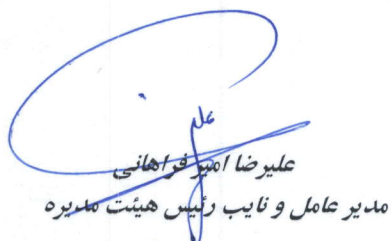 علیرضا امیر فراهانی
مدیر عامل و نایب رئیس هیئت مدیره